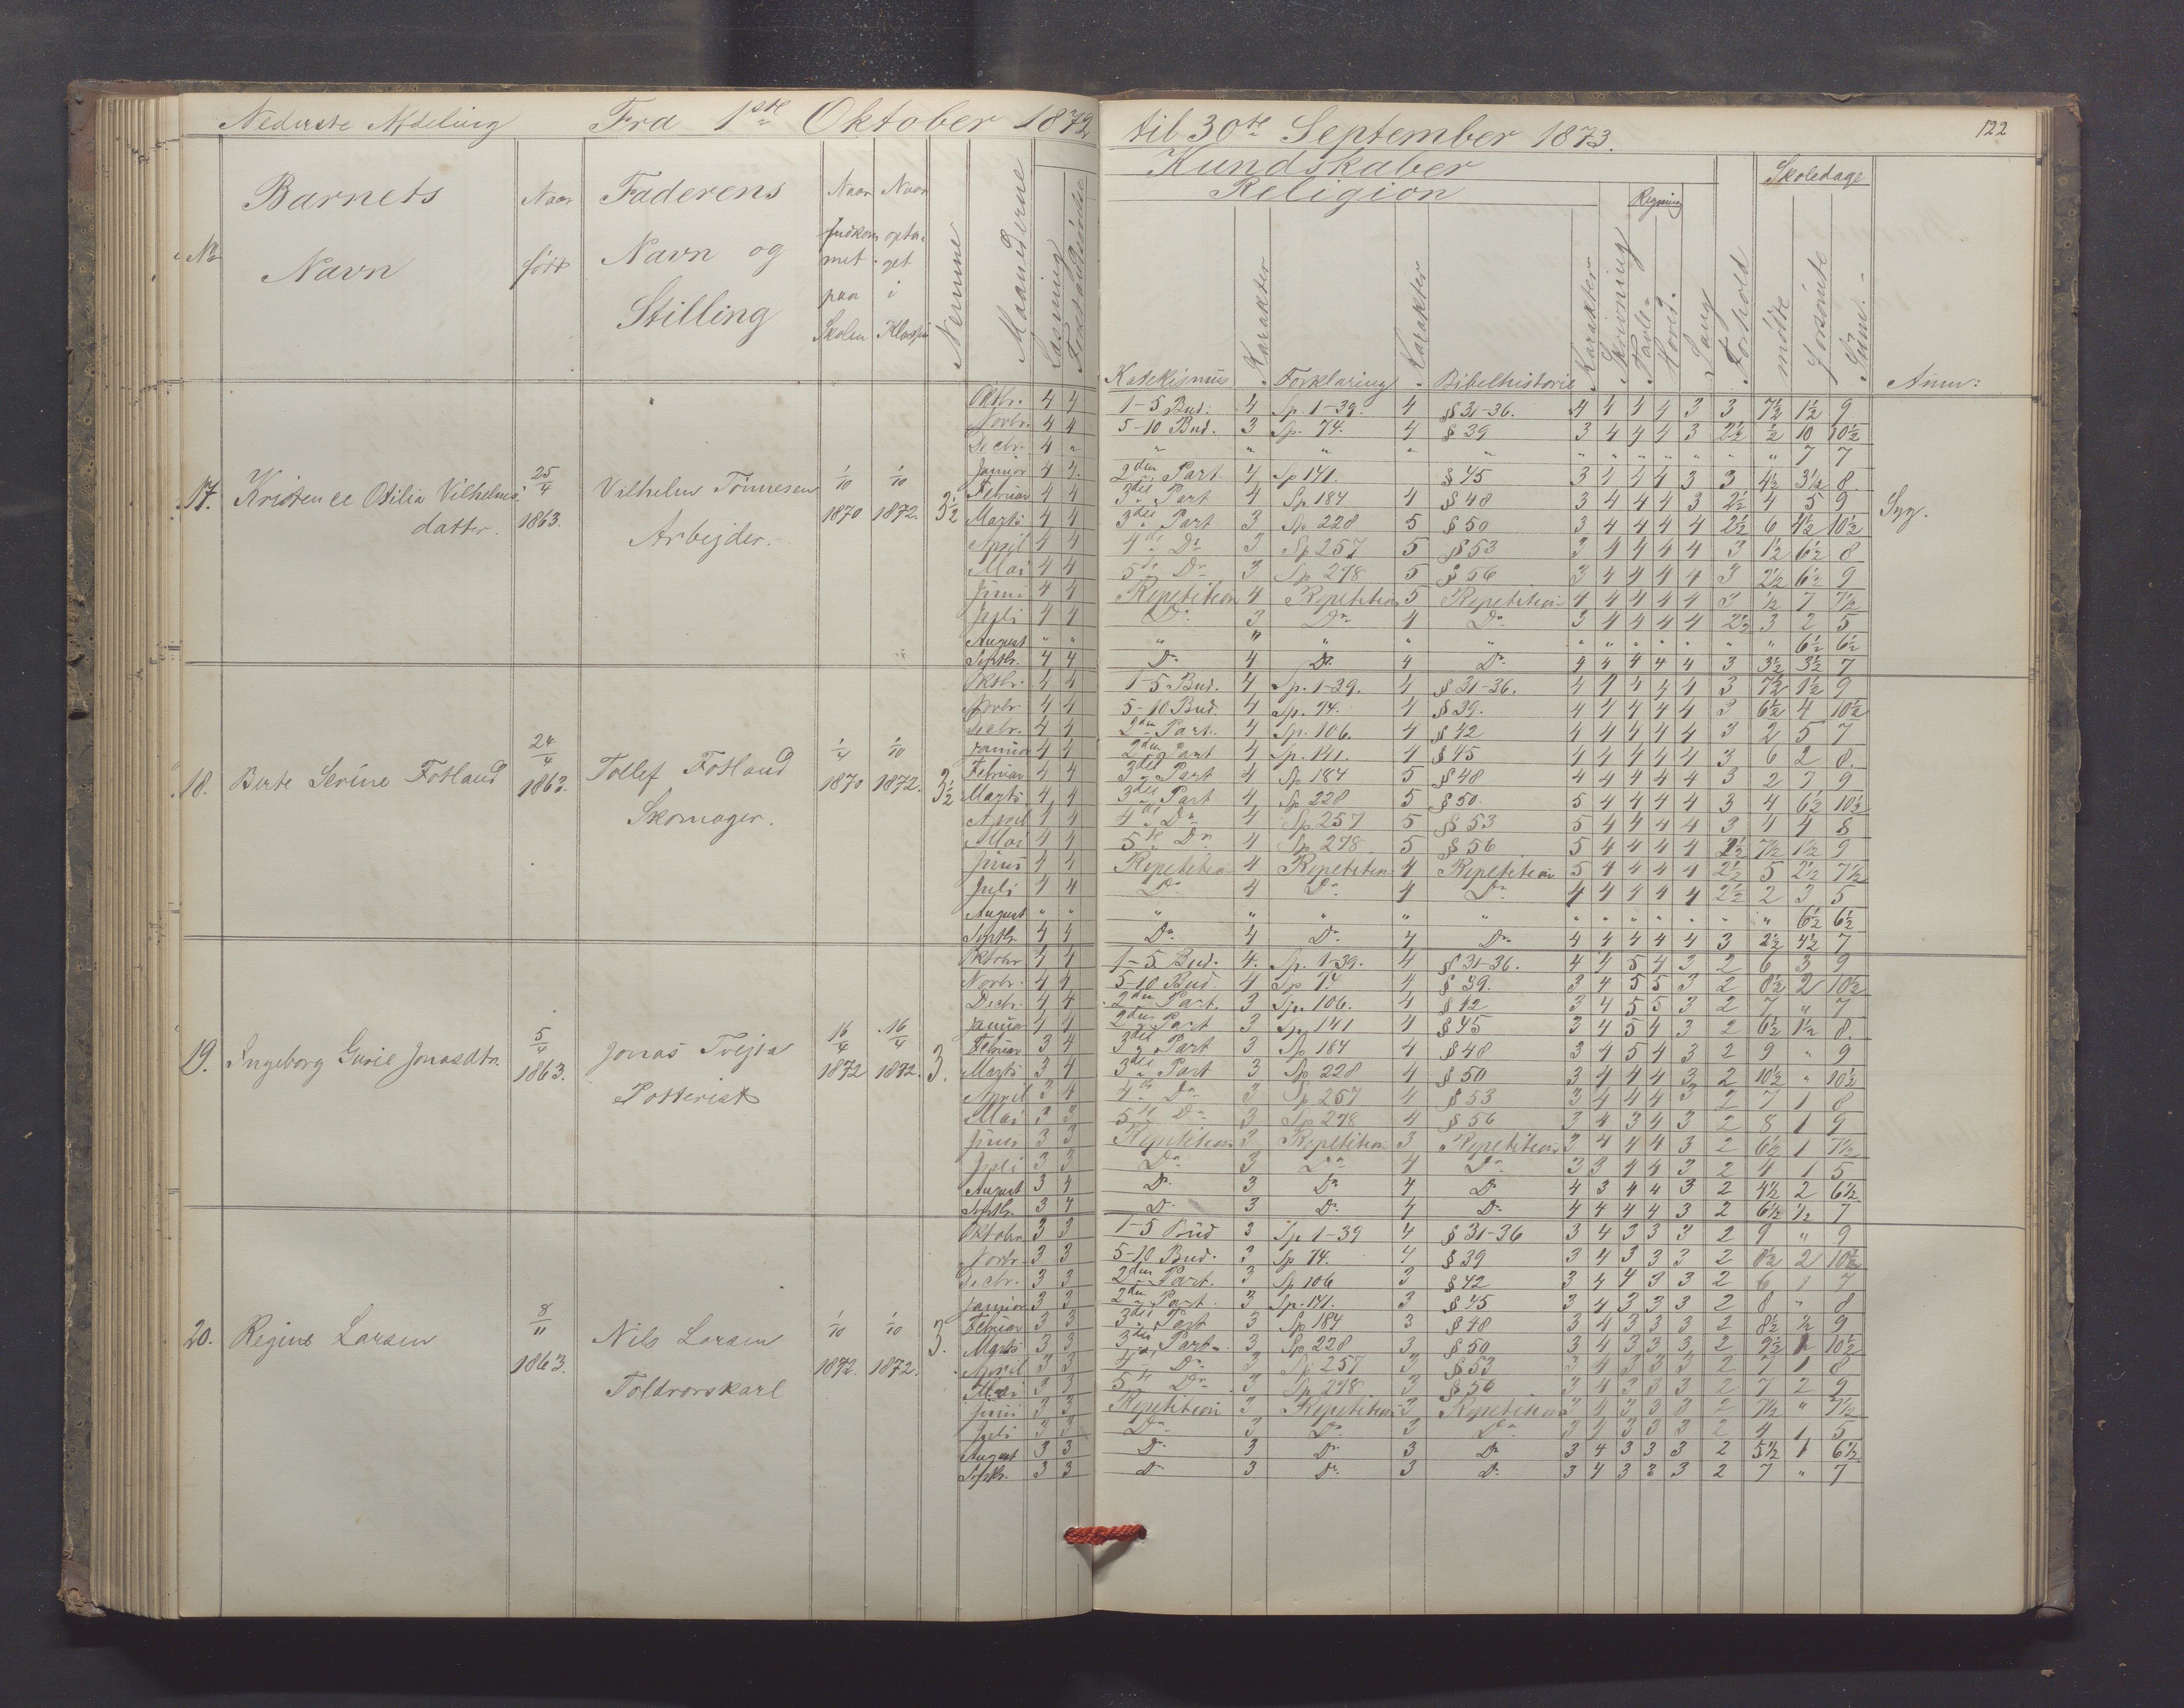 Nederste Afdeling Fra 1ste Oktober 1872 til 30te September 1873. 122
Kundskaber
Religion Regning Skoledage
No Barnets Navn Naar født Faderens Navn og Stilling Naar indkommet paa Skolen Naar optaget i Klassen Nemme Maanederne Læsning Forstandsøvelse Katekismus Karakter Forklaring Karakter Bibelhistorie Karakter Skrivning Tavle- Hoved- Sang Forhold mødte forsømte Sum. Anm:
17. Kristence Otilia Vilhelmsdatter. 25/4 1863. Vilhelm Tönnesen Arbejder. 1/10 1870 1/10 1872. 3½ Syg.
Oktbr. 4 4 1-5 Bud. 4 Sp. 1-39. 4 §31-36. 4 4 4 4 3 3 7½ 1½ 9
Novbr. 4 4 5-10 Bud. 3 Sp. 74. 4 §39 3 4 4 4 3 2½ ½ 10 10½
Decbr. 4 " " " " " " " " " " " " " 7 7
Januar 4 4 2den Part. 4 Sp 141. §45 3 4 4 4 3 3 4½ 3½ 8
Februar 4 4 3die Part 4 Sp 184 4 §48 3 4 4 4 3 2½ 4 5 9
Marts 4 4 3die Part 3 Sp 228 5 §50 3 4 4 4 4 2½ 6 4½ 10½
April 4 4 4de Do 3 Sp 257 5 §53 3 4 4 4 4 3 1½ 6½ 8
Mai 4 4 5te Do 3 Sp 278 5 §56 3 4 4 4 4 3 2½ 6½ 9
Juni 4 4 Repetition 4 Repetition 5 Repetition 4 4 4 4 4 3 ½ 7 7½
Juli 4 4 Do 3 Do 4 Do 3 4 4 4 4 2½ 3 2 5
August " " " " " " " " " " " " " " 6½ 6½
Septbr. 4 4 Do 4 Do 4 Do 4 4 4 4 4 3 3½ 3½ 7
18. Berte Serine Fotland 24/4 1863. Tollef Fotland Skomager. 1/4 1870 1/10 1872. 3½
Oktbr. 4 4 1-5 Bud. 4 Sp. 1-39. 4 §31-36. 4 4 4 4 4 3 7½ 1½ 9
Novbr. 4 4 5-10 Bud. 4 Sp. 74. 4 §39. 4 4 4 4 4 3 6½ 4 10½
Decbr. 4 4 2den Part. 4 Sp. 106. 4 §42 4 4 4 4 4 3 2 5 7
Januar 4 4 2den Part 4 Sp. 141. 4 §45 4 4 4 4 4 3 6 2 8.
Februar 4 4 3die Part 4 Sp 184 5 §48 4 4 4 4 4 3 2 7 9
Marts 4 4 3die Part 4 Sp 228 5 §50. 5 4 4 4 4 3 4 6½ 10½
April 4 4 4de Do 4 Sp 257 5 §53 5 4 4 4 4 3 4 4 8
Mai 4 4 5te Do 4 Sp 278. 5 §56 5 4 4 4 4 2½ 7½ 1½ 9
Juni 4 4 Repetition 4 Repetition 4 Repetition 5 4 4 4 4 2½ 5 2½ 7½
Juli 4 4 Do 4 Do 4 Do 4 4 4 4 4 2½ 2 3 5
August " " " " " " " " " " " " " " 6½ 6½
Septbr. 4 4 Do 4 Do 4 Do 4 4 4 4 4 3 2½ 4½ 7
19. Ingeborg Gurie Jonasdtr. 5/4 1863. Jonas Tvejta Potterist 16/4 1872 16/4 1872. 3.
Oktobr 4 4 1-5 Bud. 4. Sp. 1-39. 4 §31-36. 4 4 5 4 3 2 6 3 9
Novbr. 4 4 5-10 Bud. 4 Sp 74 4 §39. 3 4 5 5 3 2 8½ 2 10½
Decbr. 4 4 2den Part. 3 Sp. 106. 4 §42 3 4 5 5 3 2 7 " 7
Januar 4 4 2den Part 3 Sp. 141 4 §45 3 4 5 4 3 2 6½ 1½ 8.
Februar 3 4 3die Part 3 Sp 184 4 §48 3 4 5 4 3 2 9 " 9
Marts 3 4 3die Part 3 Sp 228 4 §50 3 4 4 4 3 2 10½ " 10½
April 3 4 4de Do 3 Sp 257 4 §53 3 4 4 4 3 2 7 1 8
Mai 3 3 5te Do 3 Sp 278 4 §56 3 4 3 4 3 2 8 1 9
Juni 3 3 Repetition 3 Repetition 3 Repetition 3 4 4 4 3 2 6½ 1 7½
Juli 3 3 Do 3 Do 4 Do 3 3 4 4 3 2 4 1 5
August 3 4 Do 3 Do 4 Do 4 3 4 4 3 2 4½ 2 6½
Septbr. 3 4 Do 3 Do 4 Do 4 4 4 4 3 2 6½ ½ 7
20. Regine Larsen 8/11 1863. Nils Larsen Toldrorskarl 1/10 1872. 1/10 1872. 3.
Oktobr. 3 3 1-5 Bud 3 Sp 1-39 4 §31-36 3 4 3 3 3 2 9 " 9
Novbr. 3 3 5-10 Bud. 3 Sp 74. 4 §39 3 4 3 3 3 2 8½ 2 10½
Decbr. 3 3 2den Part. 3 Sp 106 3 §42 3 4 4 3 3 2 6 1 7
Januar 3 3 2den Part. 3 Sp. 141. 3 §45 3 4 3 3 3 2 8 " 8
Februar 3 3 3die Part 3 Sp 184 3 §48 3 4 3 3 3 2 8½ ½ 9
Marts 3 3 3die Part 3 Sp 228 3 §50 3 4 3 3 3 2 9½ 1 10½
April 3 3 4de Do 3 Sp 257 3 §53 3 4 3 3 3 2 7 1 8
Mai 3 3 5te Do 3 Sp 278 3 §56 3 4 3 3 3 2 7 2 9
Juni 3 3 Repetition 3 Repetition 3 Repetition 3 4 3 3 3 2 7½ " 7½
Juli 3 3 Do 3 Do 3 Do 3 4 3 3 3 2 4 1 5
August 3 3 Do 3 Do 3 Do 3 4 3 3 3 2 5½ 1 6½
Septbr. 3 3 Do 3 Do 3 Do 3 4 3 3 3 2 7 " 7